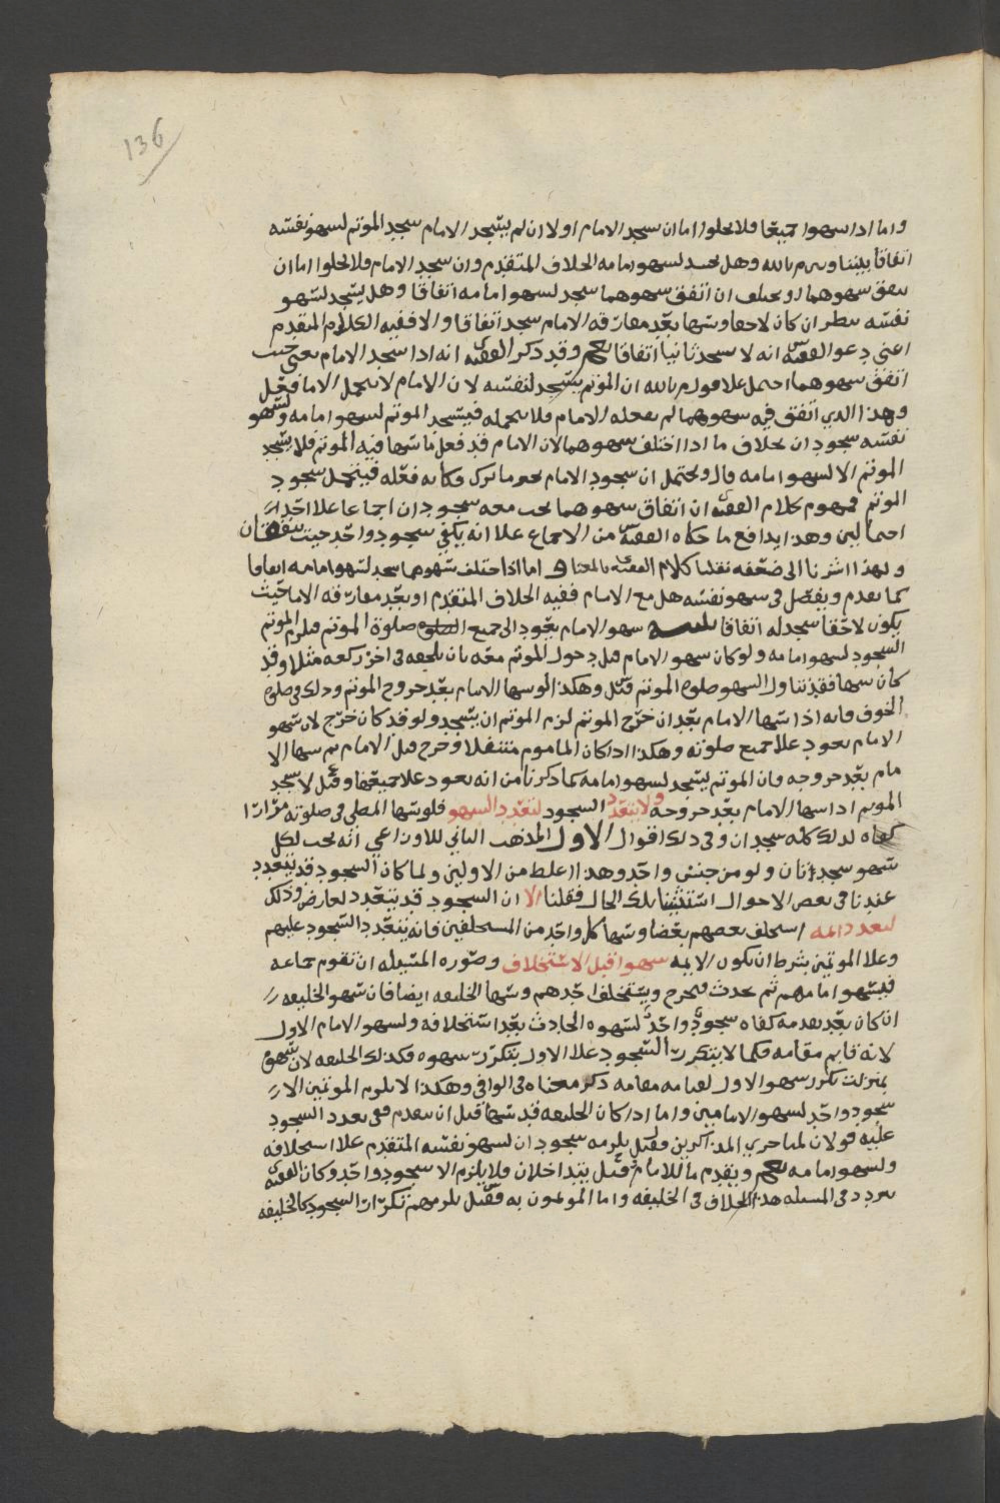 136
واما اذا سهوا جميعا فلا يخلوا اما ان يسجد الامام اولا ان لم يسجد الامام سجد الموتم لسهو نفسه
اتفاقا بيننا وبين م بالله وهل يسجد لسهو امامه الخلاف المتقدم وان سجد الامام فلا يخلوا اما ان
يتفق سهوهما او يختلف ان اتفق سهوهما سجد لسهو امامه اتفاقا وهل يسجد لسهو
نفسه ينظر ان كان لاحقا وسها بعد مفارقة الامام سجد اتفاقا والا ففيه الكلام المتقدم
اعني دعوا الفقيه انه لا يسجد ثانيا اتفاقا وقد ذكر الفقيه انه اذا سجد الامام يعني حيث
اتفق سهوهما احتمل علا قول م بالله ان الموتم يسجد لنفسه لان الامام لا يتحمل الا ما فعل
وهذا الذي اتفق فيه سهوهما لم يفعله الامام فلا يتحمله فيسجد الموتم لسهو امامه ولسهو
نفسه سجودان بخلاف ما اذا اختلف سهوهما لان الامام قد فعل ما سها فيه الموتم فلا يسجد
الموتم الا لسهو امامه قال ويحتمل ان سجود الامام يجبر ما ترك فكانه فعله فيتحمل سجود
الموتم فمهوم كلام الفقيه ان اتفاق سهوهما يجب معه سجودان اجماعا علا احد
احتمالين وهذا يدافع ما حكاه الفقيه من الاجماع علا انه يكفي سجود واحد حيث يتفقان
ولهذا اشرنا الى ضعفه نقلنا كلام الفقيه بالمعنا و اما اذا اختلف سهوهما سجد لسهو امامه اتفاقا
كما تقدم ويفصل في سهو نفسه هل مع الامام ففيه الخلاف المتقدم او بعد مفارقة الامام حيث
يكون لاحقا سجد له اتفاقا تنبيه سهو الامام يعود الى جميع صلوة الموتم فيلزم الموتم
السجود لسهو امامه ولو كان سهو الامام قبل دخول الموتم معه بان يلحقه في اخر ركعه مثلا وقد
كان سها فقد تناول السهو صلوة الموتم قيل وهكذا لو سها الامام بعد خروج الموتم وذلك في صلوة
الخوف فانه اذا سها الامام بعد ان خرج الموتم لزم الموتم ان يسجد ولو قد كان خرج لان سهو
الامام يعود علا جميع صلوته وهكذا اذا كان الماموم متنفلا وخرج قبل الامام ثم سها الا
مام بعد خروجه فان الموتم يسجد لسهو امامه كما ذكرنا من انه يعود علا جميعها وقيل لا يسجد
الموتم اذا سها الامام بعد خروجه ولا يتعدد السجود لتعدد السهو فلو سها المصلي في صلوته مرارا
كفاه لذلك كله سجدتان وفي ذلك اقوال الاول المذهب الثاني للاوزاعي انه يجب لكل
سهو سجدتان ولو من جنس واحد وهذا اغلط من الاولين ولما كان السجود قد يتعدد
عندنا في بعض الاحوال استثنينا تلك الحال فقلنا الا ان السجود قد يتعدد لعارض وذلك
لتعدد ائمه استخلف بعضهم بعضا وسها كل واحد من المستخلفين فانه يتعدد السجود عليهم
وعلا الموتمين بشرط ان يكون الايمه سهوا قبل الاستخلاف وصوره المسئله ان تقوم جماعه
فيسهوا امامهم ثم يحدث فيخرج ويستخلف احدهم وسها الخليفه ايضا فان سهو الخليفه
ان كان بعد تقدمه كفاه سجود واحد لسهوه الحادث بعد استخلافه ولسهو الامام الاول
لانه قايم مقامه فكما لا يتكرر السجود علا الاول بتكرر سهوه فكذلك الخليفه لان سهوه
بمنزلت تكرر سهو الاول لقيامه مقامه ذكر معناه في الوافي وهكذا لا يلزم الموتمين الا
سجود واحد لسهو الامامين واما اذا كان الخليفه قد سها قبل ان يتقدم ففي تعدد السجود
عليه قولان لمتاخري المذاكرين فقيل يلزمه سجودان لسهو نفسه المتقدم علا استخلافه
ولسهو امامه ويقدم ما للامام قيل يتداخلان ولا يلزم الا سجود واحد وكان الفقيه
يتردد في المسئله هذا الخلاف في الخليفه واما الموتمون به فقيل يلزمهم تكرار السجود كالخليفه